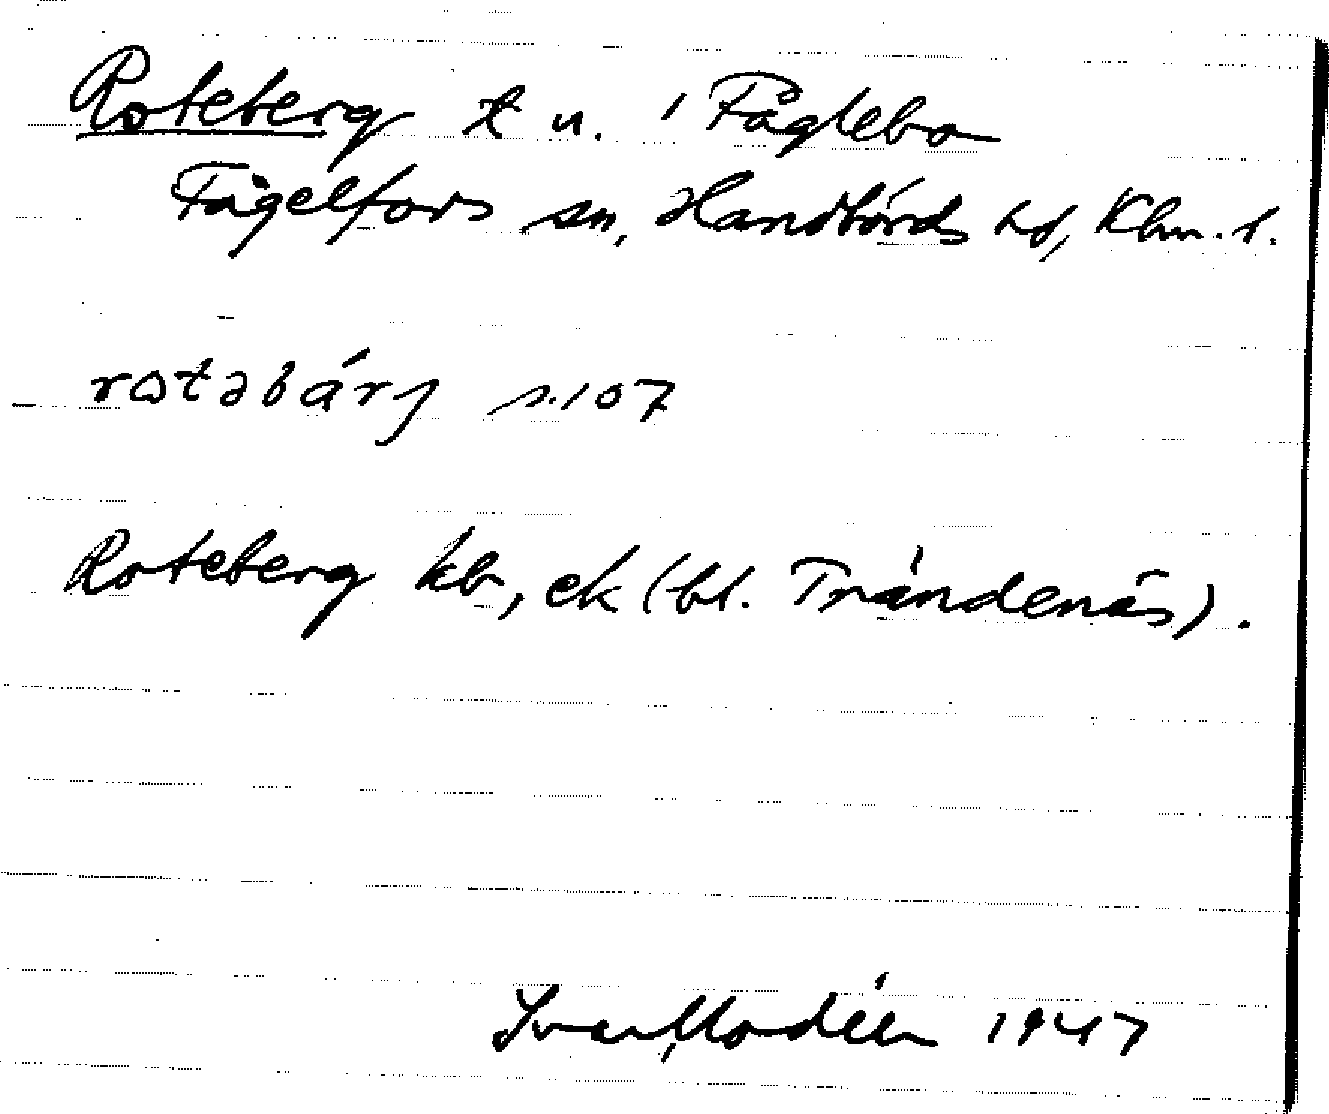 Roteberg t u. i Fåglebo
Fågelfors sn, Handbörds hd, Klm. l.
rotəbárj s. 107
Roteberg kb, ek (bl. Trändenäs).
Ivar Modéer 1947